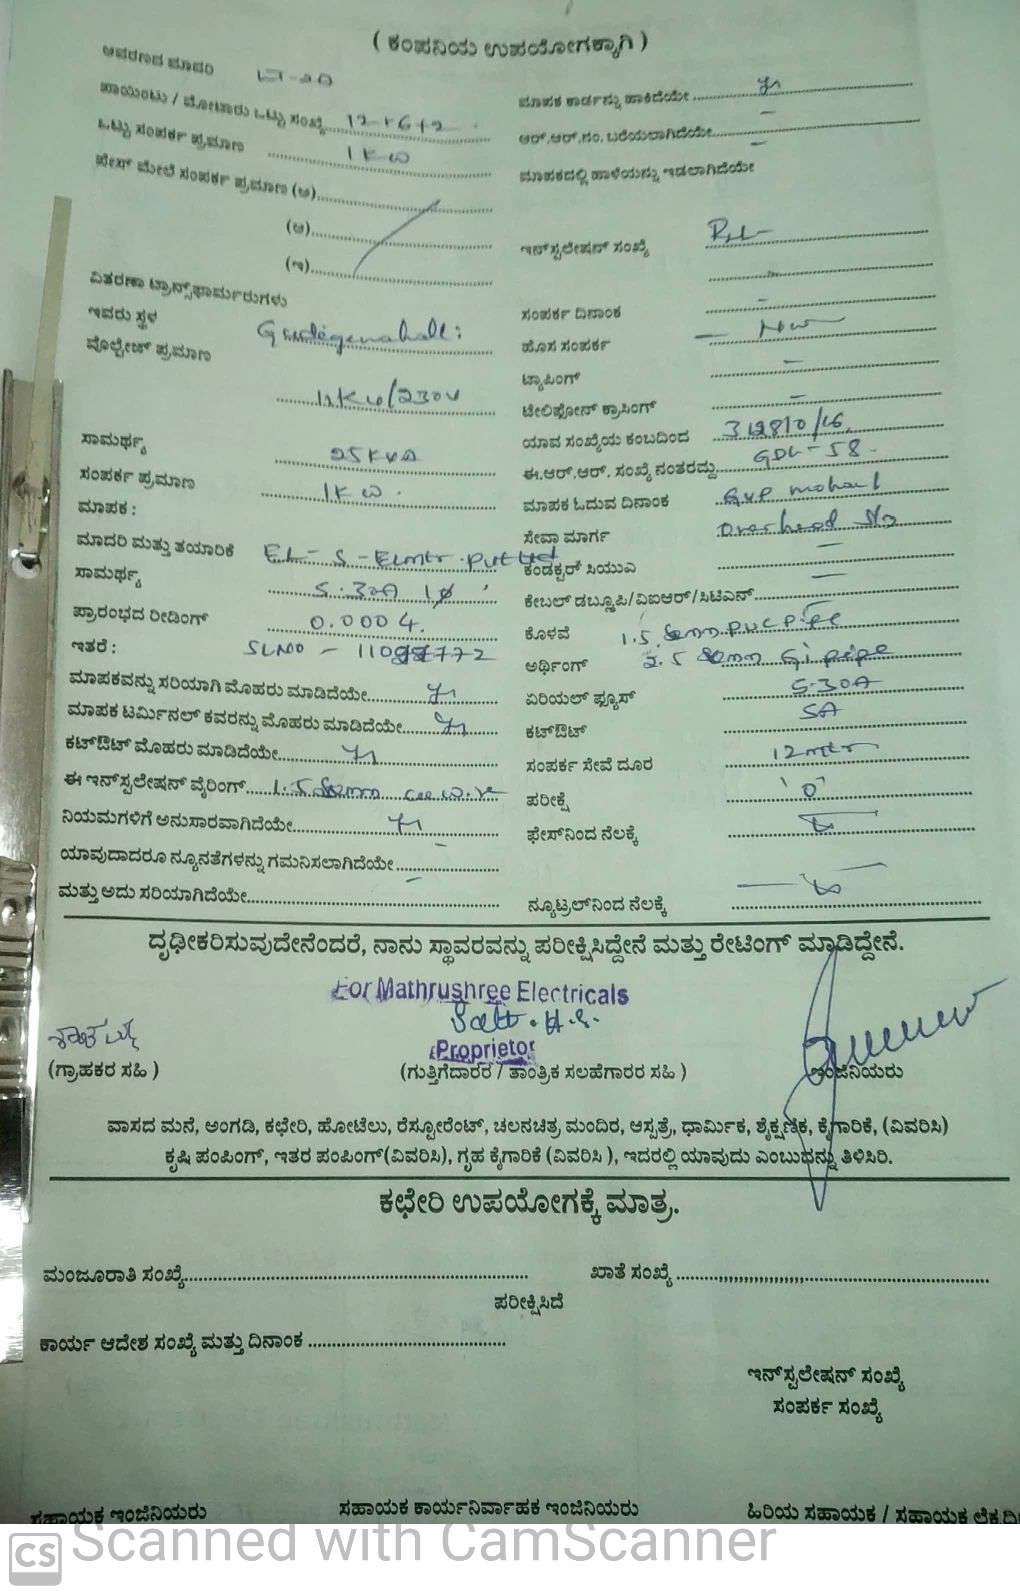 ( ಕಂಪನಿಯ ಉಪಯೋಗಕ್ಕಾಗಿ )
ಆವರಣದ ಮಾದರಿ
ಪಾಯಿಂಟು / ಮೋಟಾರು ಒಟ್ಟು ಸಂಖ್ಯೆ 12+6+2
ಒಟ್ಟು ಸಂಪರ್ಕ ಪ್ರಮಾಣ 1KW
ಫೇಸ್ ಮೇಲೆ ಸಂಪರ್ಕ ಪ್ರಮಾಣ (ಅ)
(ಆ)
(ಇ)
ವಿತರಣಾ ಟ್ರಾನ್ಸ್‌ಫಾರ್ಮರುಗಳು
ಇವರು ಸ್ಥಳ
ವೊಲ್ಟೇಜ್ ಪ್ರಮಾಣ
11KV/230V
ಸಾಮರ್ಥ್ಯ 25KVA
ಸಂಪರ್ಕ ಪ್ರಮಾಣ 1KW.
ಮಾಪಕ :
ಮಾದರಿ ಮತ್ತು ತಯಾರಿಕೆ
ಸಾಮರ್ಥ್ಯ 5-30A 1φ
ಪ್ರಾರಂಭದ ರೀಡಿಂಗ್ 0.0004.
ಇತರೆ : SLNO -
ಮಾಪಕವನ್ನು ಸರಿಯಾಗಿ ಮೊಹರು ಮಾಡಿದೆಯೇ
ಮಾಪಕ ಟರ್ಮಿನಲ್ ಕವರನ್ನು ಮೊಹರು ಮಾಡಿದೆಯೇ
ಕಟ್‌ಔಟ್ ಮೊಹರು ಮಾಡಿದೆಯೇ
ಈ ಇನ್‌ಸ್ಟಲೇಷನ್ ವೈರಿಂಗ್
ನಿಯಮಗಳಿಗೆ ಅನುಸಾರವಾಗಿದೆಯೇ
ಯಾವುದಾದರೂ ನ್ಯೂನತೆಗಳನ್ನು ಗಮನಿಸಲಾಗಿದೆಯೇ
ಮತ್ತು ಅದು ಸರಿಯಾಗಿದೆಯೇ
ಮಾಪಕ ಕಾರ್ಡನ್ನು ಹಾಕಿದೆಯೇ
ಆರ್.ಆರ್.ನಂ. ಬರೆಯಲಾಗಿದೆಯೇ
ಮಾಪಕದಲ್ಲಿ ಹಾಳೆಯನ್ನು ಇಡಲಾಗಿದೆಯೇ
ಇನ್‌ಸ್ಟಲೇಷನ್ ಸಂಖ್ಯೆ
ಸಂಪರ್ಕ ದಿನಾಂಕ
ಹೊಸ ಸಂಪರ್ಕ New
ಟ್ಯಾಪಿಂಗ್
ಟೇಲಿಫೋನ್ ಕ್ರಾಸಿಂಗ್
ಯಾವ ಸಂಖ್ಯೆಯ ಕಂಬದಿಂದ
ಈ.ಆರ್.ಆರ್. ಸಂಖ್ಯೆ ನಂತರದ್ದು GDL-58
ಮಾಪಕ ಓದುವ ದಿನಾಂಕ
ಸೇವಾ ಮಾರ್ಗ Overhead
ಕಂಡಕ್ಟರ್ ಸಿಯುಎ
ಕೇಬಲ್ ಡಬ್ಲೂಪಿ/ವಿಐಆರ್/ಸಿಟಿಎನ್
ಕೊಳವೆ 1.5 Sqmm PVC Pipe
ಅರ್ಥಿಂಗ್ 2.5 Sqmm Gi pipe
ಏರಿಯಲ್ ಫ್ಯೂಸ್ 5-30A
ಕಟ್‌ಔಟ್ 5A
ಸಂಪರ್ಕ ಸೇವೆ ದೂರ 12mtr
ಪರೀಕ್ಷೆ '0'
ಫೇಸ್‌ನಿಂದ ನೆಲಕ್ಕೆ
ನ್ಯೂಟ್ರಲ್‌ನಿಂದ ನೆಲಕ್ಕೆ
ದೃಢೀಕರಿಸುವುದೇನೆಂದರೆ, ನಾನು ಸ್ಥಾವರವನ್ನು ಪರೀಕ್ಷಿಸಿದ್ದೇನೆ ಮತ್ತು ರೇಟಿಂಗ್ ಮಾಡಿದ್ದೇನೆ.
For Mathrushree Electricals
Proprietor
(ಗ್ರಾಹಕರ ಸಹಿ ) (ಗುತ್ತಿಗೆದಾರರ / ತಾಂತ್ರಿಕ ಸಲಹೆಗಾರರ ಸಹಿ ) ಇಂಜಿನಿಯರು
ವಾಸದ ಮನೆ, ಅಂಗಡಿ, ಕಛೇರಿ, ಹೋಟೆಲು, ರೆಸ್ಟೋರೆಂಟ್, ಚಲನಚಿತ್ರ ಮಂದಿರ, ಆಸ್ಪತ್ರೆ, ಧಾರ್ಮಿಕ, ಶೈಕ್ಷಣಿಕ, ಕೈಗಾರಿಕೆ, (ವಿವರಿಸಿ)
ಕೃಷಿ ಪಂಪಿಂಗ್, ಇತರ ಪಂಪಿಂಗ್(ವಿವರಿಸಿ), ಗೃಹ ಕೈಗಾರಿಕೆ (ವಿವರಿಸಿ ), ಇದರಲ್ಲಿ ಯಾವುದು ಎಂಬುದನ್ನು ತಿಳಿಸಿರಿ.
ಕಛೇರಿ ಉಪಯೋಗಕ್ಕೆ ಮಾತ್ರ.
ಮಂಜೂರಾತಿ ಸಂಖ್ಯೆ ಖಾತೆ ಸಂಖ್ಯೆ
ಪರೀಕ್ಷಿಸಿದೆ
ಕಾರ್ಯ ಆದೇಶ ಸಂಖ್ಯೆ ಮತ್ತು ದಿನಾಂಕ
ಇನ್‌ಸ್ಟಲೇಷನ್ ಸಂಖ್ಯೆ
ಸಂಪರ್ಕ ಸಂಖ್ಯೆ
ಸಹಾಯಕ ಇಂಜಿನಿಯರು ಸಹಾಯಕ ಕಾರ್ಯನಿರ್ವಾಹಕ ಇಂಜಿನಿಯರು ಹಿರಿಯ ಸಹಾಯಕ / ಸಹಾಯಕ
CS Scanned with CamScanner